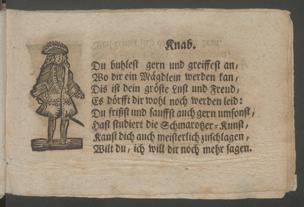 Knab.
Du buhlest gern und greiffest an,
Wo dir ein Mägdlein werden kan,
Dis ist dein gröste Lust und Freud,
Es dörfft dir wohl noch werden leid:
Du frißst und sauffst auch gern umsonst,
Hast studiert die Schmarotzer-Kunst,
Kanst dich auch meisterlich zuschlagen,
Wilt du, ich will dir noch mehr sagen.